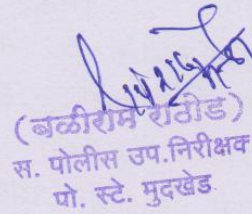 (बळीराम राठोड)
स. पोलीस उप.निरीक्षक
पो. स्टे. मुदखेड